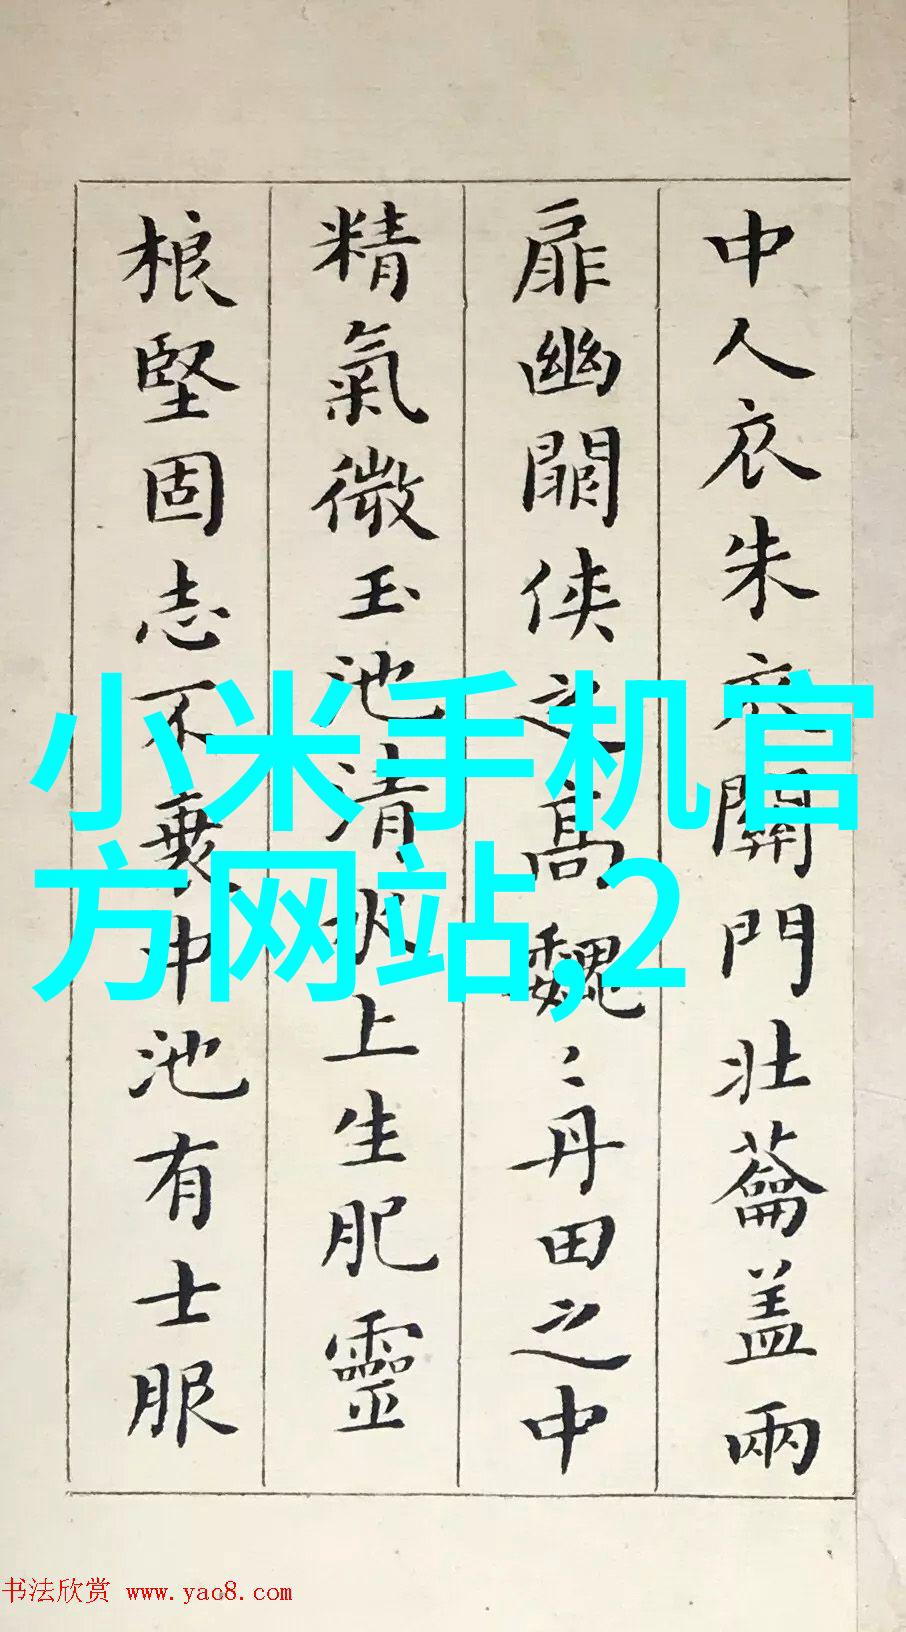 中人衣朱衣關門壯蘥盖兩
扉幽闕俠之高魏〻丹田之中
精氣微玉池清水上生肥靈
根堅固志不衰中池有士服
小米手机官
方网站,2
书法欣赏 www.yac8.com